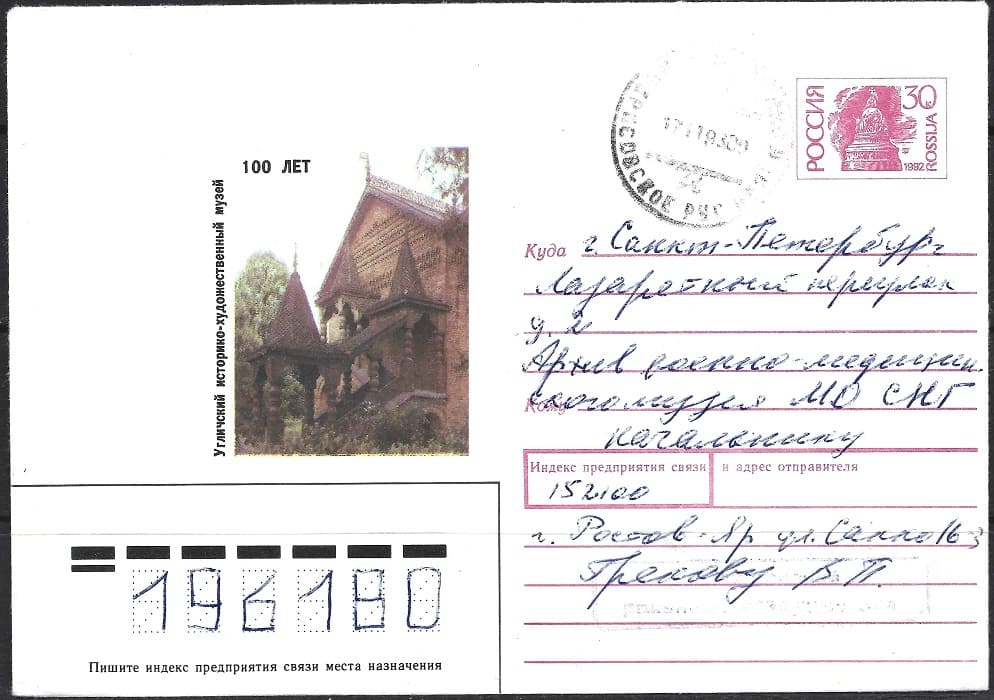 100 ЛЕТ
Угличский историко-художественный музей
РОССИЯ
30к
1992
ROSSIJA
Куда г. Санкт-Петербург
Лазаретный переулок
д. 2
Архив военно-медицин.
Кому ского музея МО СНГ
начальнику
Индекс предприятия связи и адрес отправителя
152100
г. Ростов-Яр ул. Сакко 163
Грекову В П.
196180
Пишите индекс предприятия связи места назначения